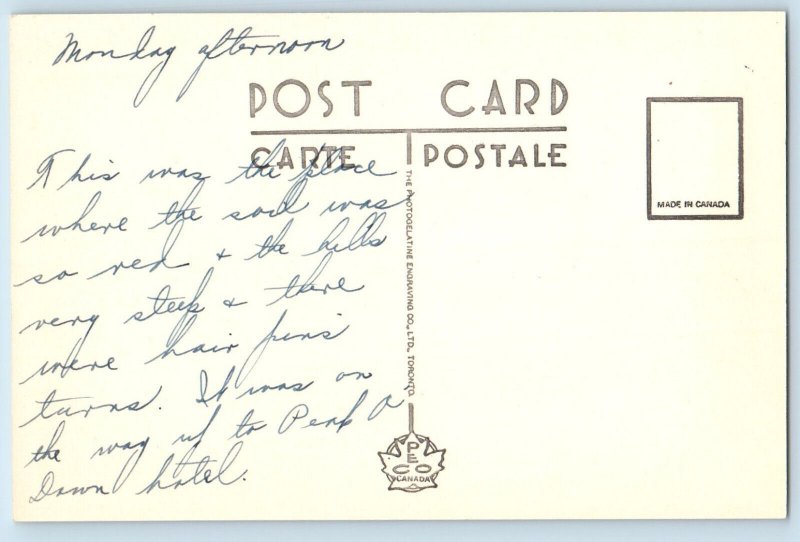 Monday afternoon
POST CARD
CARTE POSTALE
MADE IN CANADA
THE PHOTOGELATINE ENGRAVING CO., LTD., TORONTO.
This was the place
where the soul was
so red & the hills
very steep & there
were hair pins
turns. It was on
the way up to Peak O
Dawn hotel.
PECO
CANADA